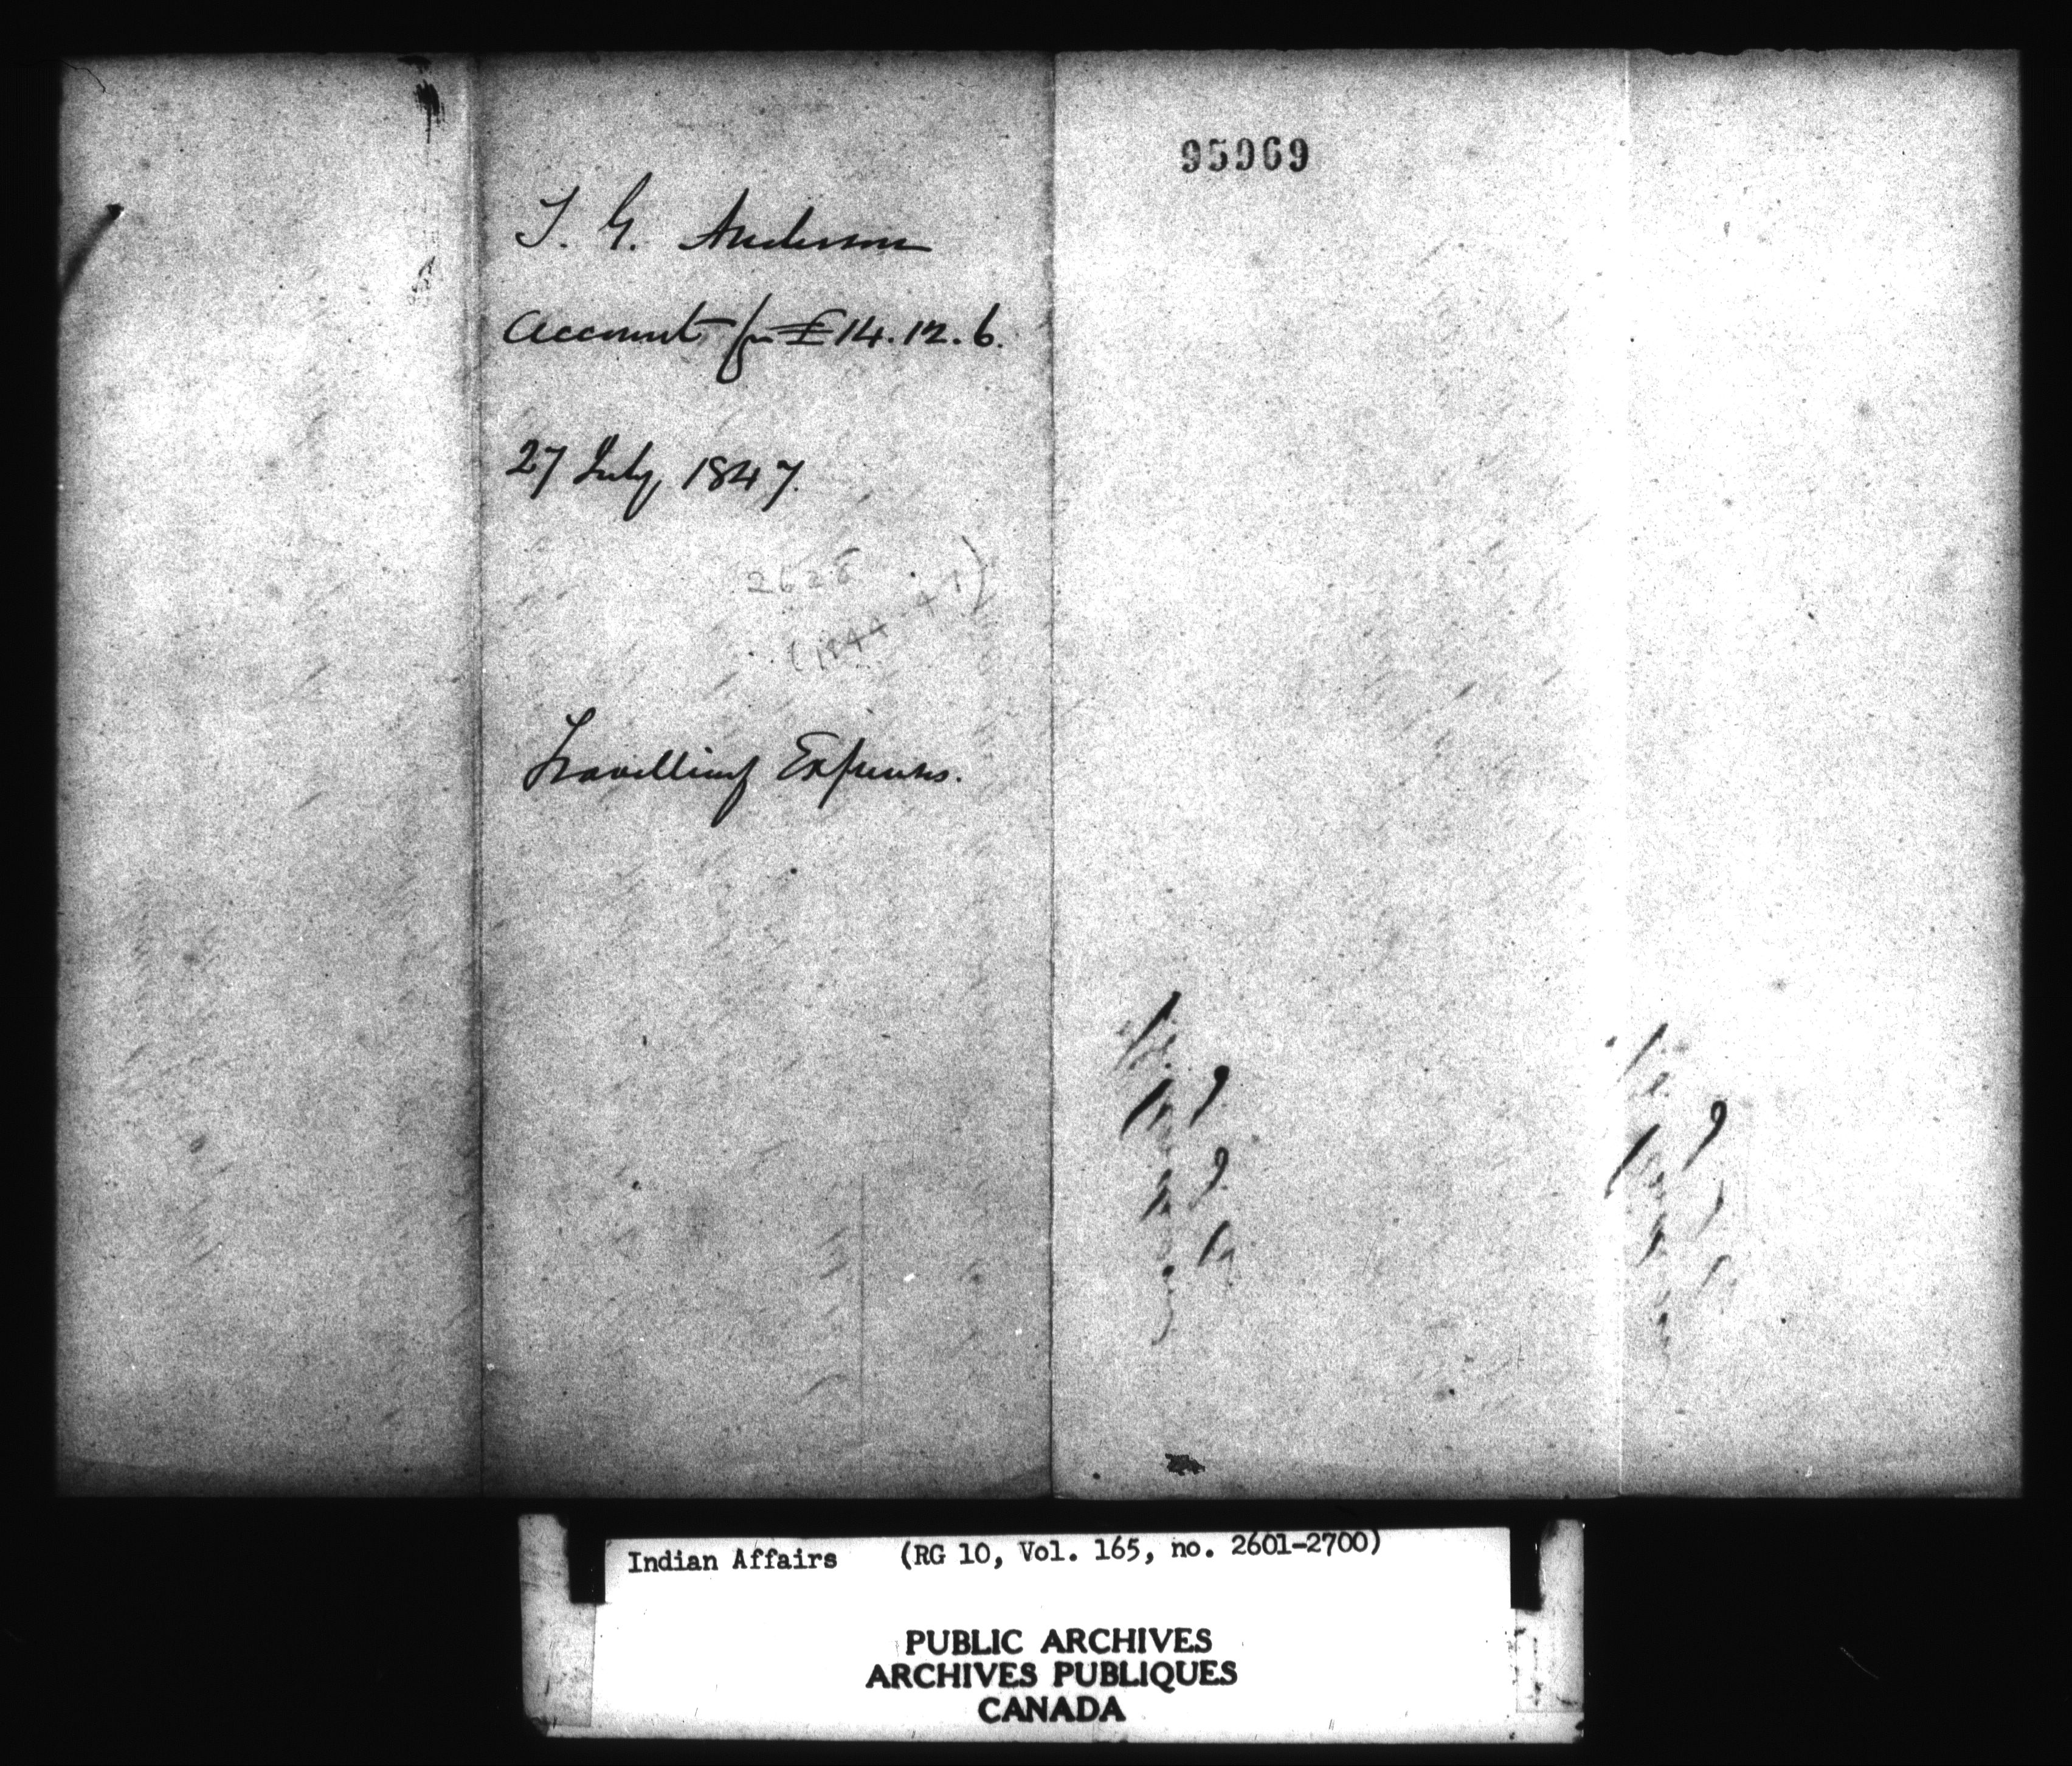 T. G. Anderson
Account for £14.12.6.
27 July, 1847.
2628
(1844-47)
Travelling Expenses.
95969
Indian Affairs (RG 10, Vol. 165, no. 2601-2700)
PUBLIC ARCHIVES
ARCHIVES PUBLIQUES
CANADA